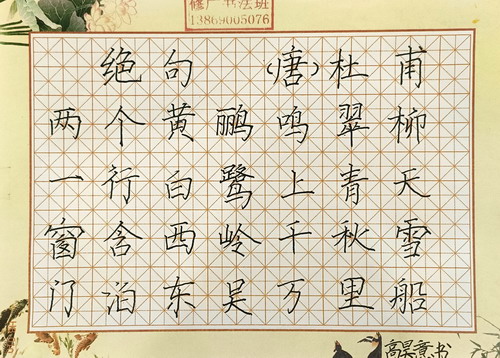 书法班
13869005076
绝句 (唐)杜甫
两个黄鹂鸣翠柳
一行白鹭上青天
窗含西岭千秋雪
门泊东吴万里船
高昊意书